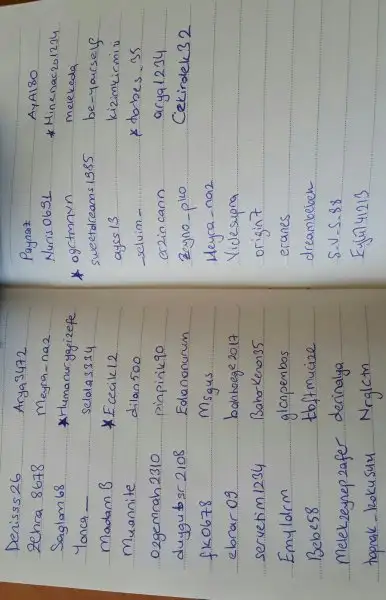 Denisss26 Arya3472
Zehra 8678 Meyra-naz
Saglam68 *Humanurygrizefe
Yonca_ Selala3344
Madam B *Ececik12
Muannite dilan500
Ozgemrah2310 pinpirik90
duygubsr2108 Edanonurum
fk0678 Misgus
elanar09 bahbaege2017
servetim1234 BaharKeno135
Emyldrm glcnpembos
Bebe58 Haftmucize
Melekzeynepzafer derinalya
toprak-kokusuu Nrglctm
Paynaz AyAl80
Nuris0691 *Minenaz201234
*ozgctmnvn melekeda
sweetdreams1985 be-yourself
aycs13 kizimkirmizi
selvim- *forbes_35
erzincann arya1234
Zeyno_pko Cekirdek32
Meyra-naz
Viclesupra
origin7
eranes
dreambebek
S-V-S-88
Eylül41213